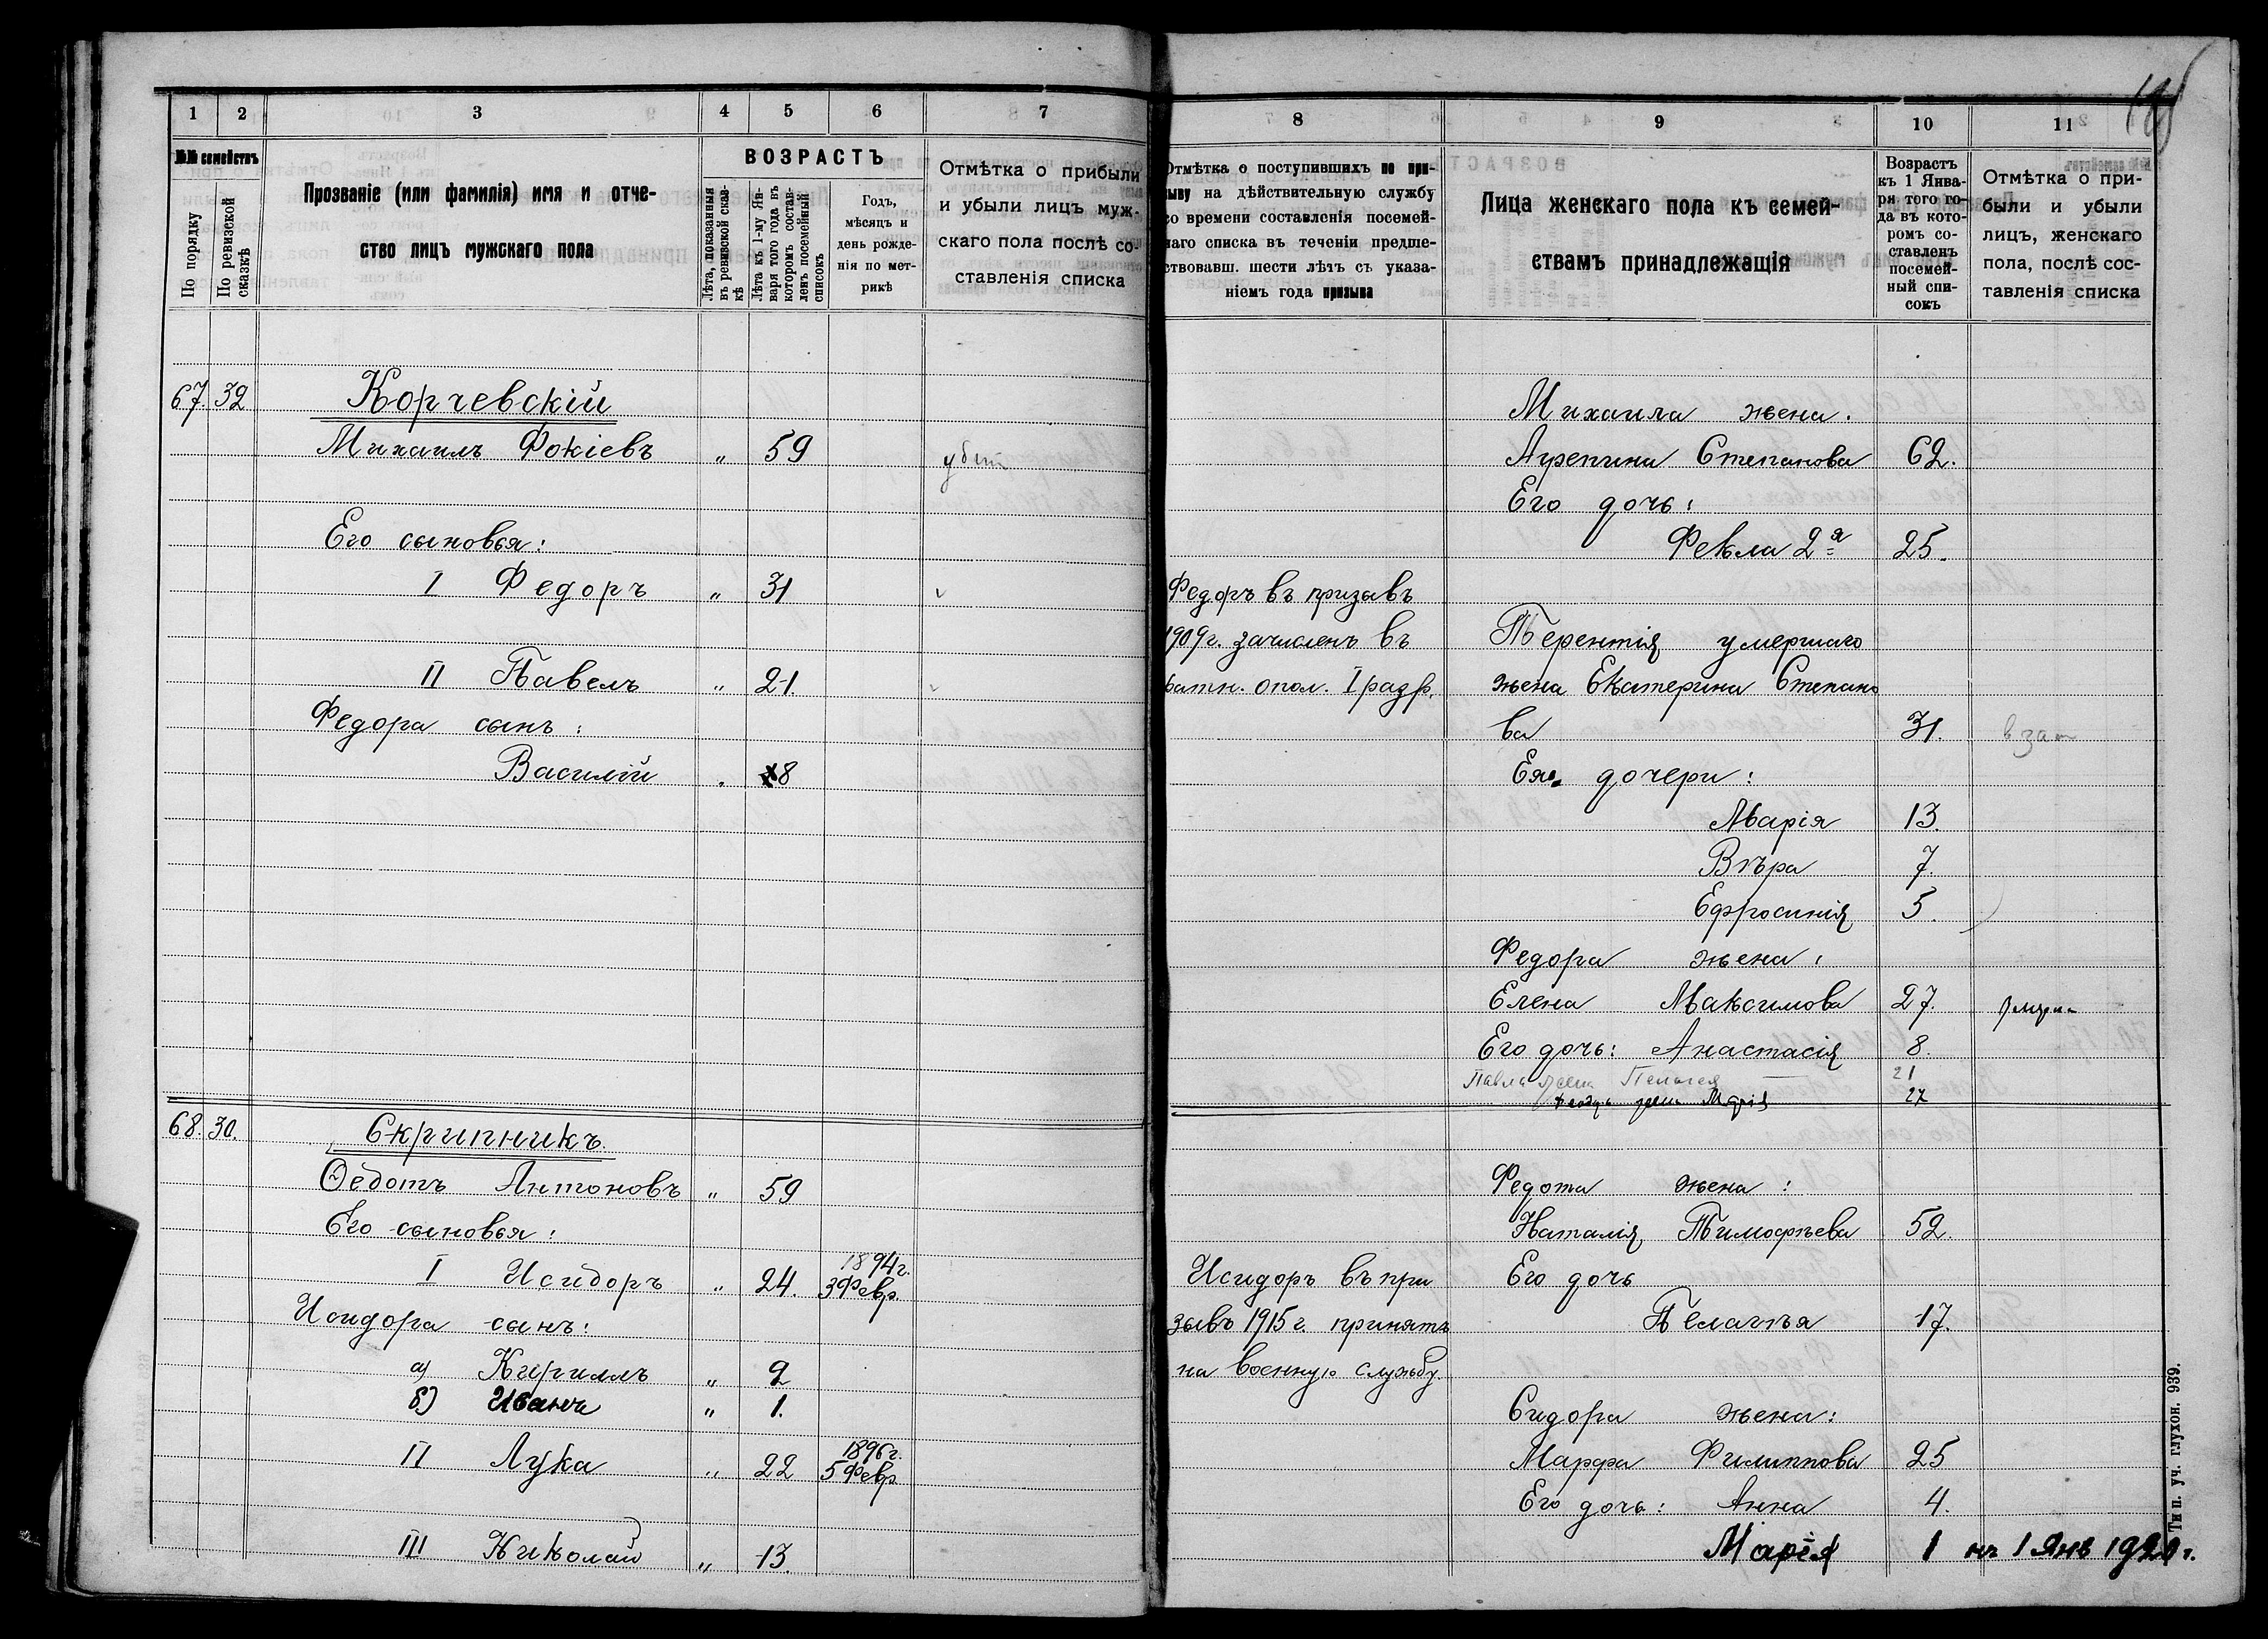 1 2 3 4 5 6 7
№№ семействъ
По порядку
По ревизской сказкѣ
Прозваніе (или фамилія) имя и отче-
ство лицъ мужскаго пола
ВОЗРАСТЪ
Лѣта, показанныя
въ ревизской сказ-
кѣ
Лѣта къ 1-му Ян-
варя того года въ
которомъ состав-
ленъ посемейный
списокъ
Годъ,
мѣсяцъ и
день рожде-
нія по мет-
рикѣ
Отмѣтка о прибыли
и убыли лицъ муж-
скаго пола послѣ со-
ставленія списка
67. 32 Корчевскій
Михаилъ Фокіевъ " 59 убит
Его сыновья:
I Федоръ " 31
II Павелъ " 21
Федора сынъ:
Василій " 8
68. 30. Скрипникъ
Ѳедотъ Антоновъ " 59
Его сыновья:
I Исидоръ " 24. 1894г.
3 Февр.
Исидора сынъ:
а) Кириллъ " 2
б) Иванъ " 1.
II Лука " 22 1896г.
5 Февр.
III Николай " 13.
8 9 10 11
Отмѣтка о поступившихъ по при-
зыву на дѣйствительную службу
со времени составленія посемей-
наго списка въ теченіи предше-
ствовавш. шести лѣтъ съ указа-
ніемъ года призыва
Лица женскаго пола къ семей-
ствамъ принадлежащія
Возрастъ
къ 1 Янва-
ря того го-
да въ кото-
ромъ со-
ставленъ
посемей-
ный спи-
сокъ
Отмѣтка о при-
были и убыли
лицъ, женскаго
пола, послѣ сос-
тавленія списка
Михаила жена.
Агрепина Степанова 62.
Его дочь:
Фекла 2я 25.
Федоръ въ призывъ
1909г. зачисленъ въ Терентія умершаго
ратн. опол. I разр. жена Екатерина Степано
ва 31.
Ея дочери:
Марія 13.
Вѣра 7.
Ефросинія 5.
Федора жена:
Елена Максимова 27.
Его дочь: Анастасія 8.
Павла жена Пелагея 21
жена Марія 27
Федота жена:
Наталія Тимофѣева 52.
Исидоръ въ при Его дочь
зывъ 1915г. принятъ Пелагѣя 17.
на военную службу.
Сидора жена:
Марфа Филиппова 25
Его дочь: Анна 4.
Марія 1 на 1 Янв 1920г.
Тип. уч. глухон. 939.